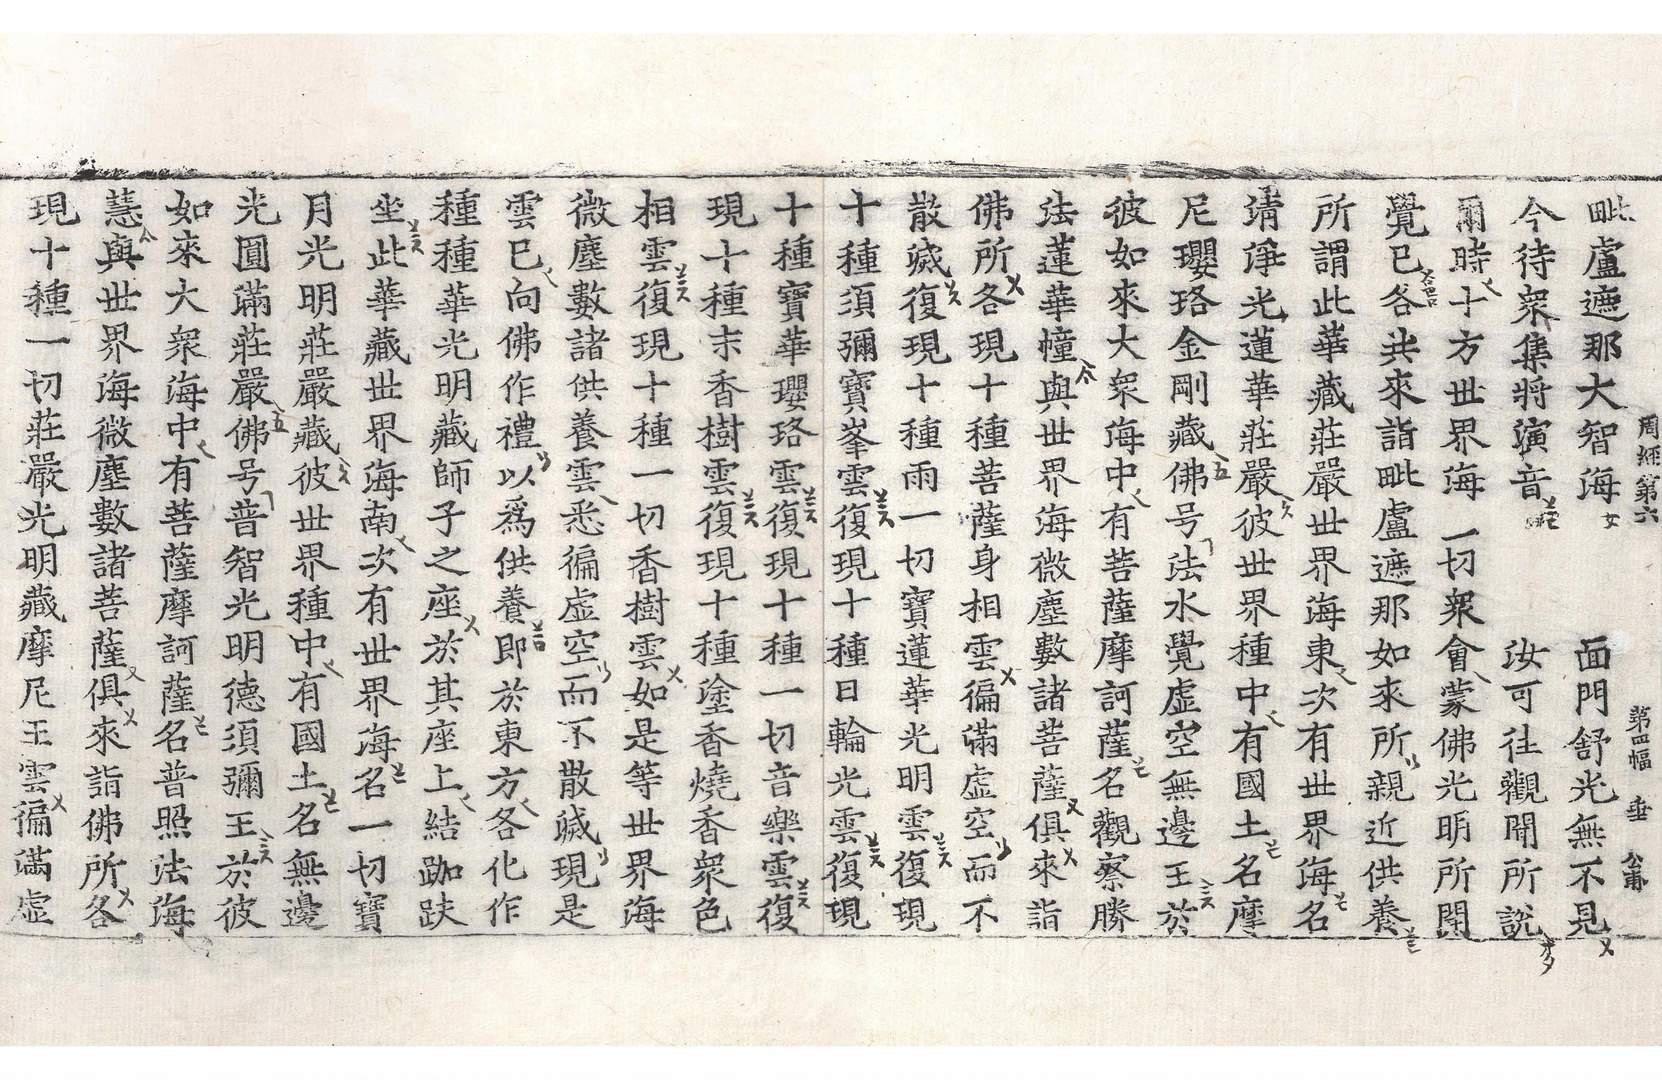 周經第六 第四幅 垂
毗盧遮那大智海 面門舒光無不見
今待衆集將演音 汝可往觀聞所說
爾時十方世界海一切衆會蒙佛光明所開
覺已各共來詣毗盧遮那如來所親近供養
所謂此華藏莊嚴世界海東次有世界海名
清淨光蓮華莊嚴彼世界種中有國土名摩
尼瓔珞金剛藏佛号法水覺虛空無邊王於
彼如來大衆海中有菩薩摩訶薩名觀察勝
法蓮華幢與世界海微塵數諸菩薩俱來詣
佛所各現十種菩薩身相雲徧滿虛空而不
散滅復現十種雨一切寶蓮華光明雲復現
十種須彌寶峯雲復現十種日輪光雲復現
十種寶華瓔珞雲復現十種一切音樂雲復
現十種末香樹雲復現十種塗香燒香衆色
相雲復現十種一切香樹雲如是等世界海
微塵數諸供養雲悉徧虛空而不散滅現是
雲已向佛作禮以爲供養即於東方各化作
種種華光明藏師子之座於其座上結跏趺
坐此華藏世界海南次有世界海名一切寶
月光明莊嚴藏彼世界種中有國土名無邊
光圓滿莊嚴佛号普智光明德須彌王於彼
如來大衆海中有菩薩摩訶薩名普照法海
慧與世界海微塵數諸菩薩俱來詣佛所各
現十種一切莊嚴光明藏摩尼王雲徧滿虛